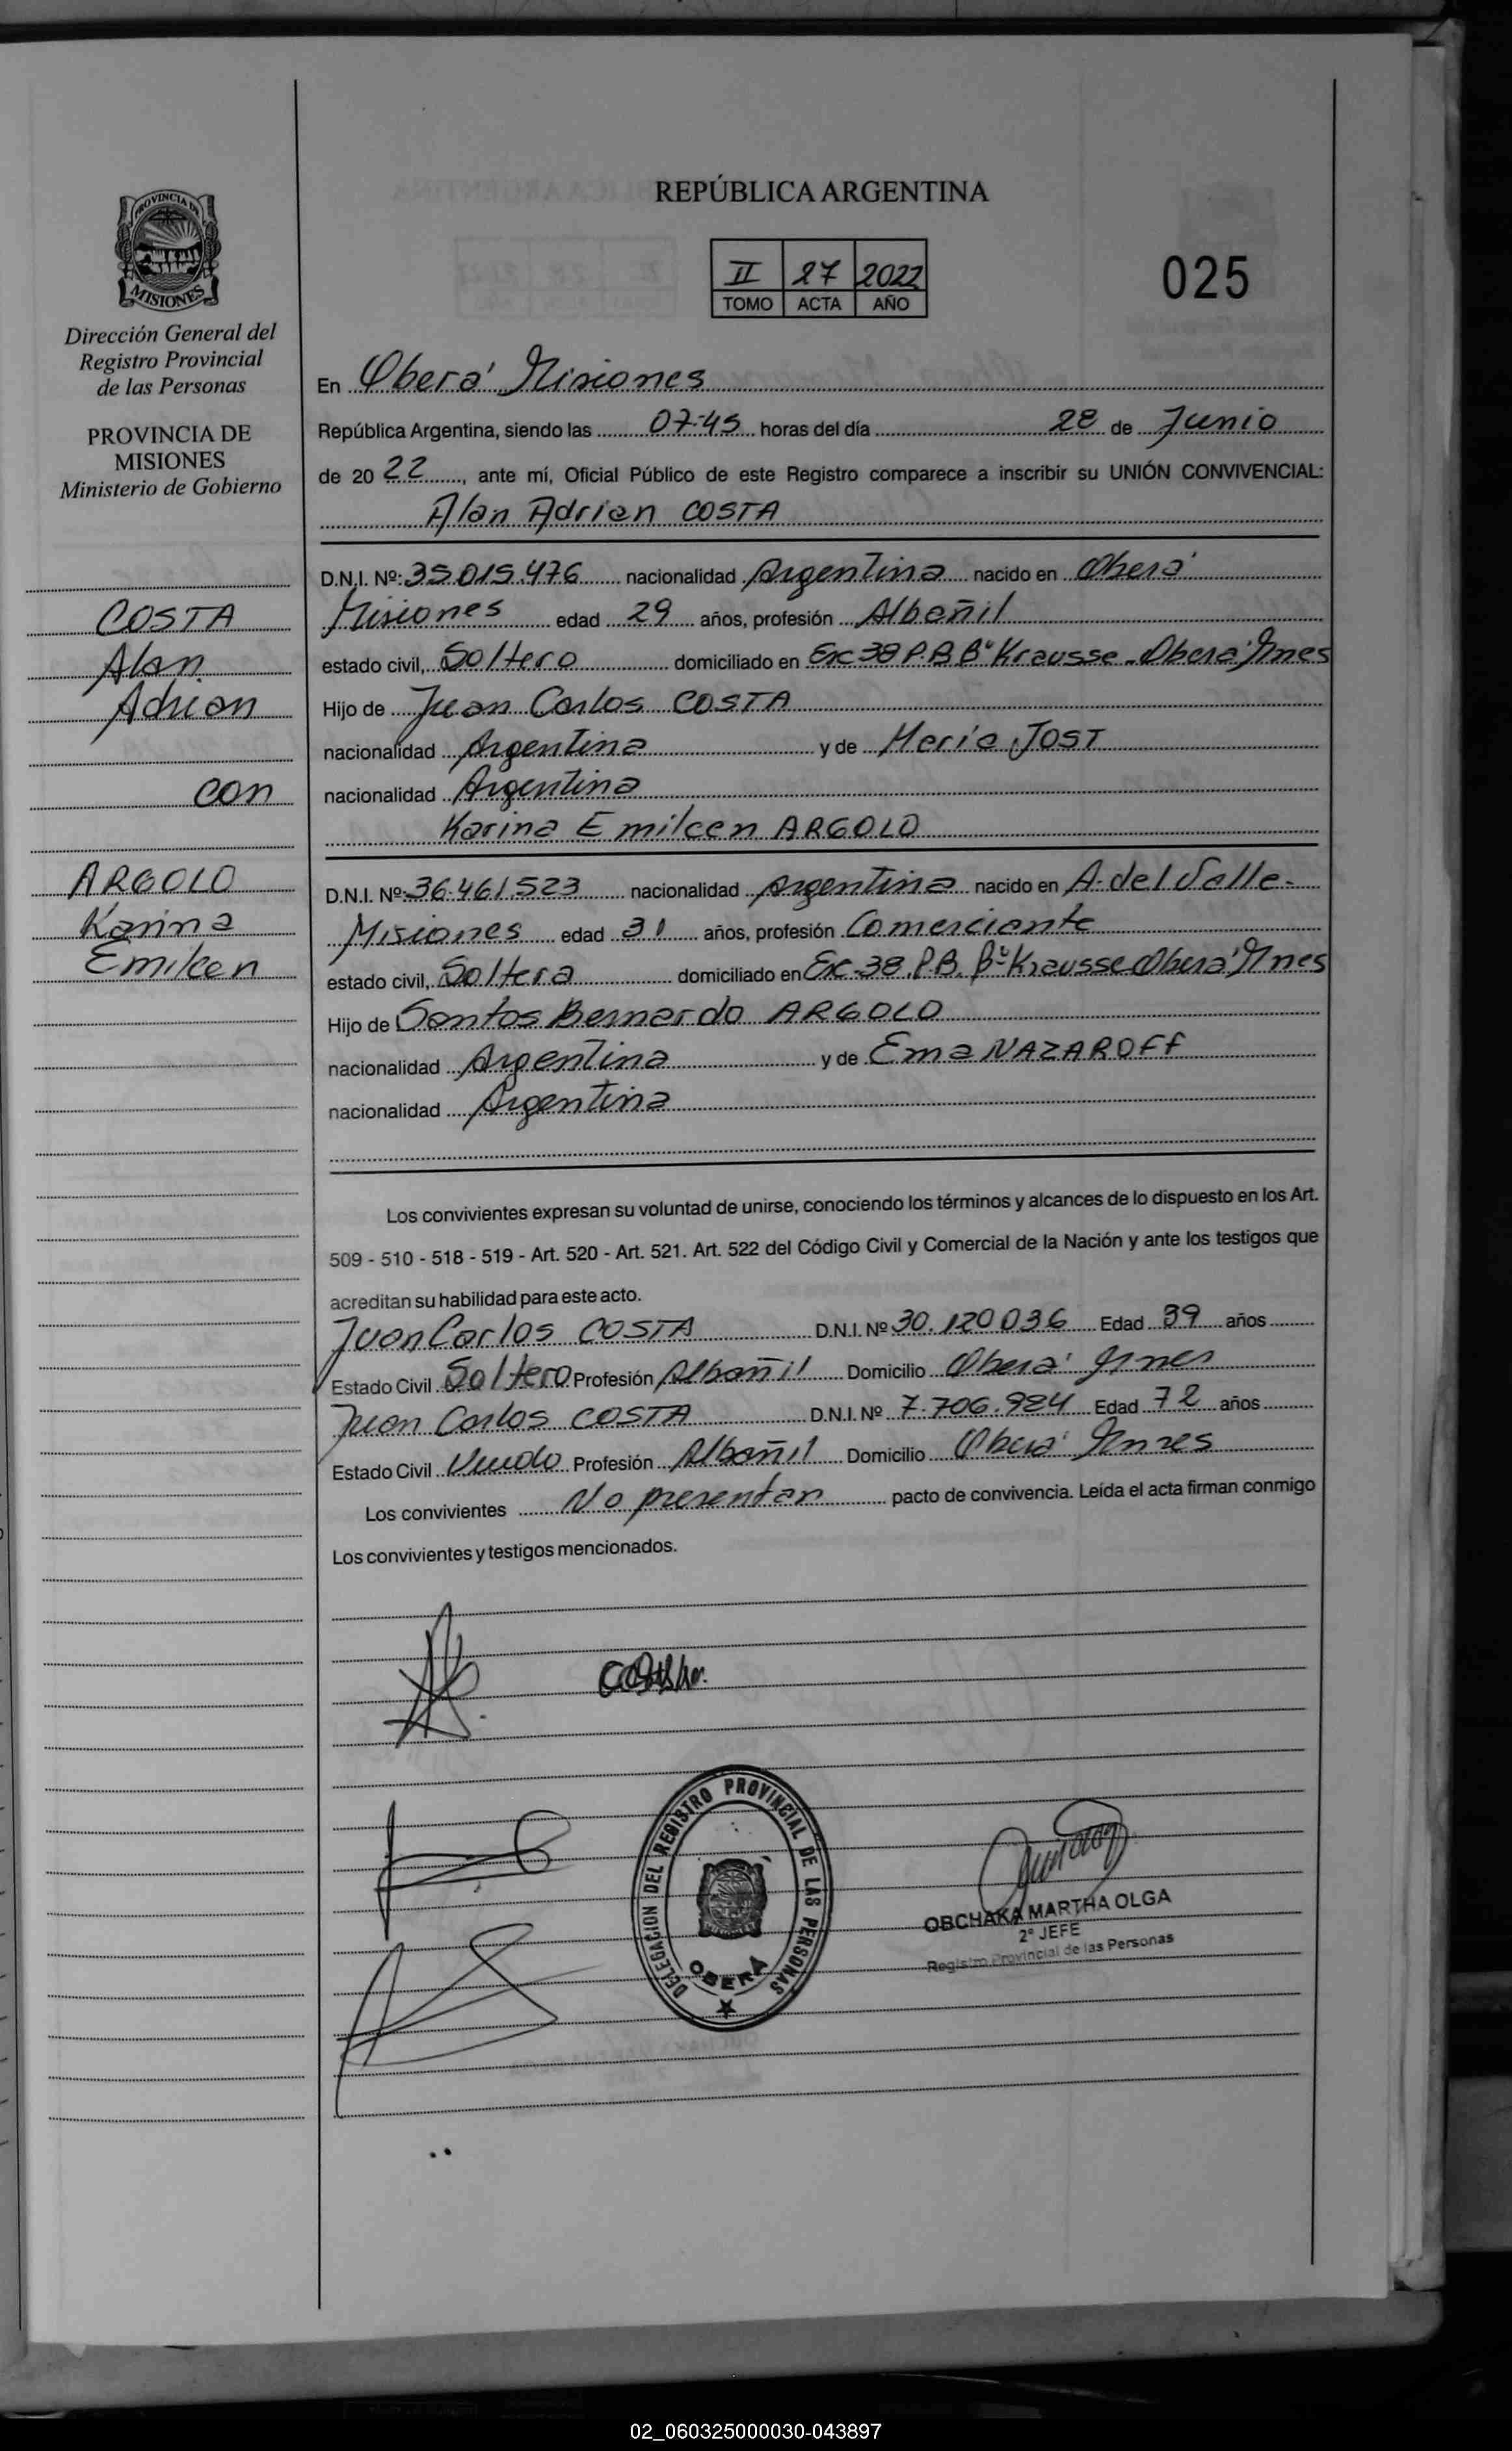 REPÚBLICA ARGENTINA
II 27 2022
TOMO ACTA AÑO
025
PROVINCIA DE
MISIONES
Dirección General del
Registro Provincial
de las Personas
PROVINCIA DE
MISIONES
Ministerio de Gobierno
COSTA
Alan
Adrian
con
ARGOLO
Karina
Emilcen
En Oberá Misiones
República Argentina, siendo las 07:45 horas del día 28 de Junio
de 20 22, ante mí, Oficial Público de este Registro comparece a inscribir su UNIÓN CONVIVENCIAL:
Alan Adrian COSTA
D.N.I. Nº: 35.015.476 nacionalidad Argentina nacido en Oberá
Misiones edad 29 años, profesión Albañil
estado civil, Soltero domiciliado en Exc 38 P.B Bº Krausse - Oberá Mnes
Hijo de Juan Carlos COSTA
nacionalidad Argentina y de María JOST
nacionalidad Argentina
Karina Emilcen ARGOLO
D.N.I. Nº: 36.461.523 nacionalidad Argentina nacido en A. del Valle-
Misiones edad 31 años, profesión Comerciante
estado civil, Soltera domiciliado en Exc-38. P.B. Bº Krausse Oberá Mnes
Hijo de Santos Bernardo ARGOLO
nacionalidad Argentina y de Ema NAZAROFF
nacionalidad Argentina
Los convivientes expresan su voluntad de unirse, conociendo los términos y alcances de lo dispuesto en los Art.
509 - 510 - 518 - 519 - Art. 520 - Art. 521. Art. 522 del Código Civil y Comercial de la Nación y ante los testigos que
acreditan su habilidad para este acto.
Juan Carlos COSTA D.N.I. Nº 30.120.036 Edad 39 años
Estado Civil Soltero Profesión Albañil Domicilio Oberá Mnes
Juan Carlos COSTA D.N.I. Nº 7.706.924 Edad 72 años
Estado Civil Viudo Profesión Albañil Domicilio Oberá Mnes
Los convivientes No presentan pacto de convivencia. Leída el acta firman conmigo
Los convivientes y testigos mencionados.
DELEGACION DEL REGISTRO PROVINCIAL DE LAS PERSONAS
OBERÁ
OBCHAKA MARTHA OLGA
2º JEFE
Registro Provincial de las Personas
02_060325000030-043897